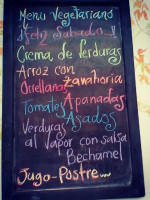 Menu Vegetariano
¡Feliz Sabado..!
Crema de Verduras
Arroz con
Zanahoria
Orellanas
Apanadas
Tomates
Asados
Verduras
al vapor con salsa
Bechamel
Jugo-Postre